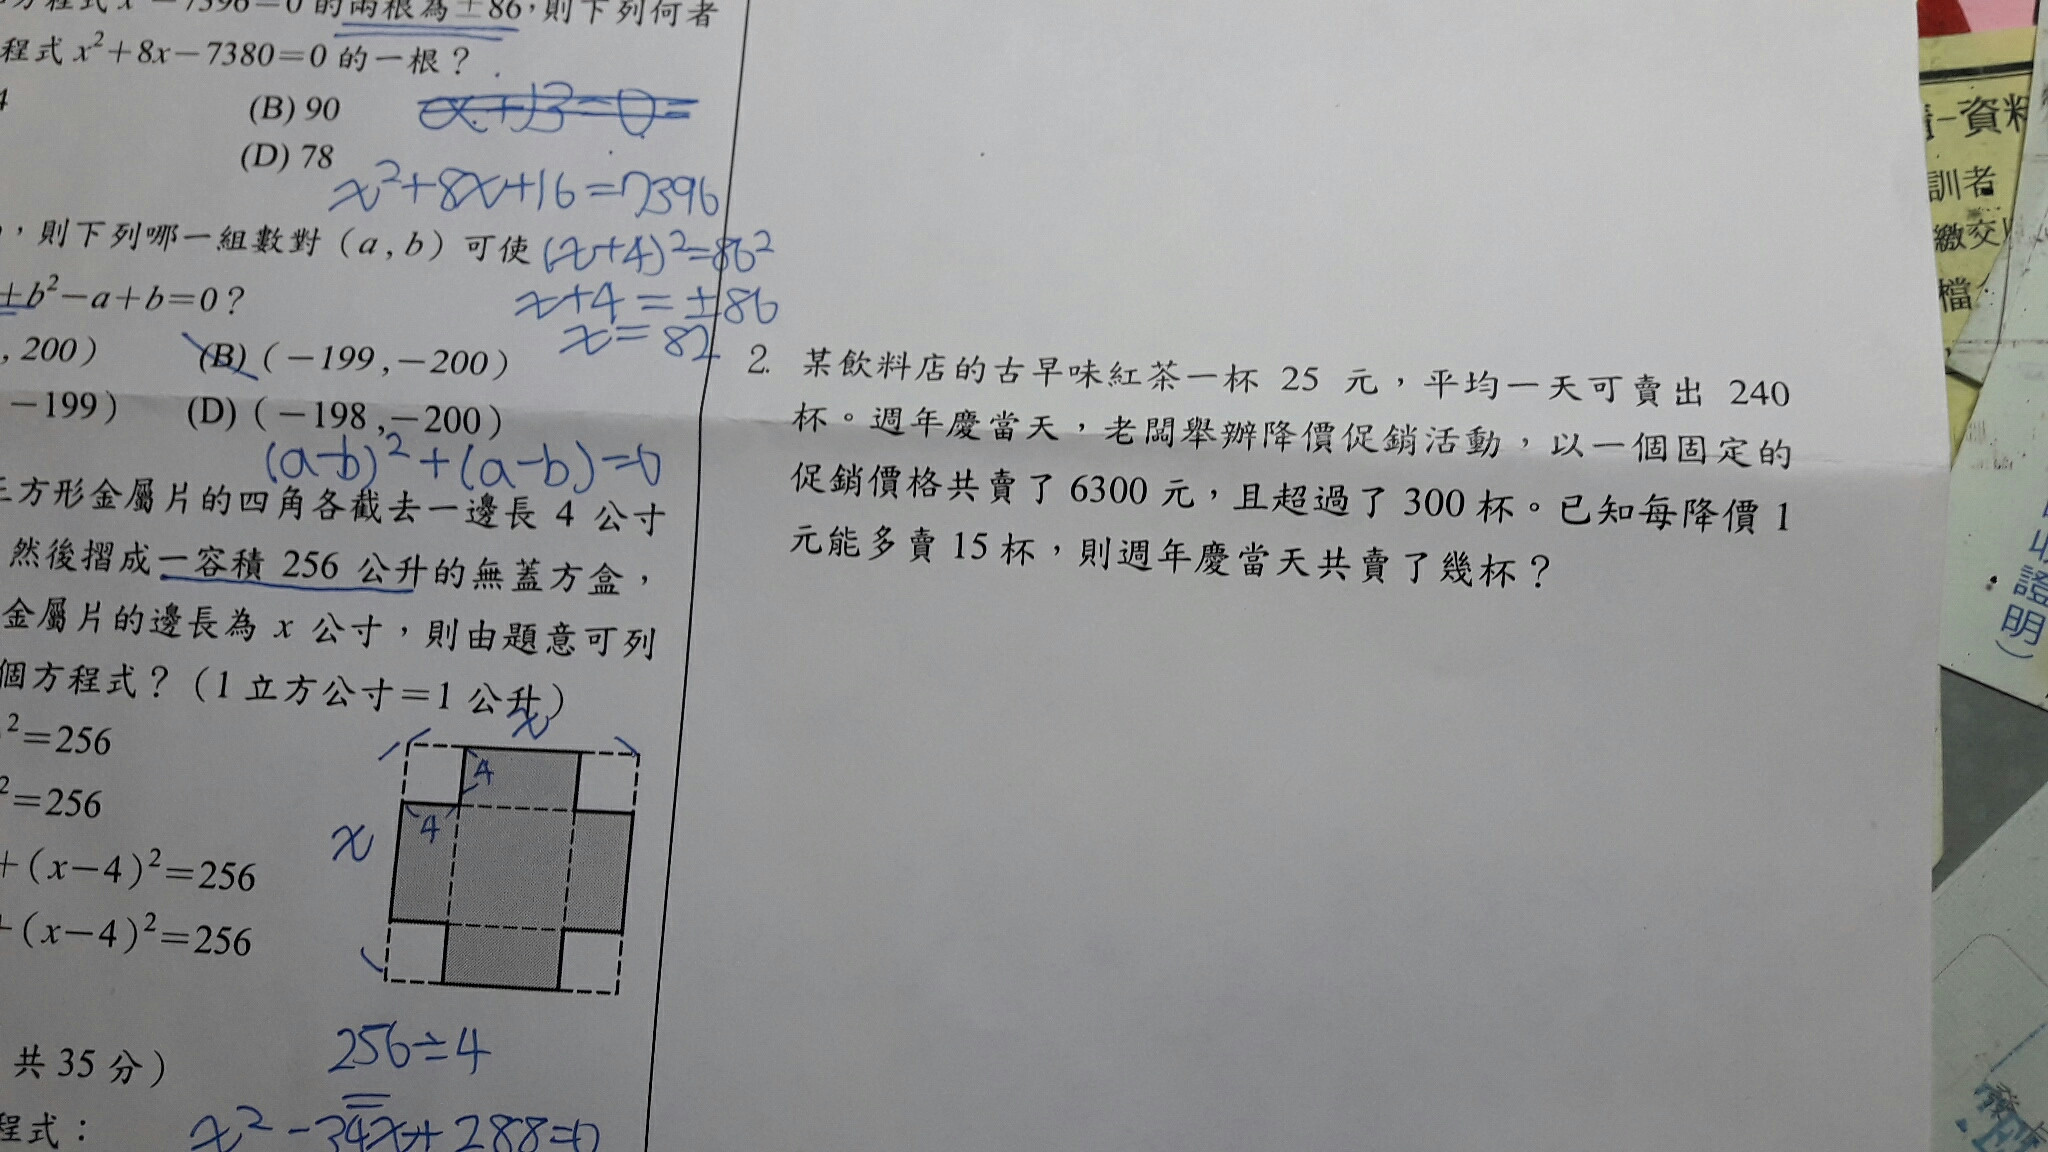 方程式 x²－7396＝0 的兩根為±86，則下列何者
程式 x²＋8x－7380＝0 的一根？
(B) 90
(D) 78
x²+8x+16=7396
，則下列哪一組數對（a , b）可使
(x+4)²=86²
±b²－a＋b＝0？
x+4=±86
x=82
, 200） (B)（－199 ,－200）
－199） (D)（－198 ,－200）
(a-b)²+(a-b)=0
正方形金屬片的四角各截去一邊長 4 公寸
然後摺成一容積 256 公升的無蓋方盒，
金屬片的邊長為 x 公寸，則由題意可列
個方程式？（1 立方公寸＝1 公升）
²＝256
²＝256
＋(x－4)²＝256
＋(x－4)²＝256
x
4
4
x
256÷4
共 35 分）
程式：
x²-34x+288=0
2. 某飲料店的古早味紅茶一杯 25 元，平均一天可賣出 240
杯。週年慶當天，老闆舉辦降價促銷活動，以一個固定的
促銷價格共賣了 6300 元，且超過了 300 杯。已知每降價 1
元能多賣 15 杯，則週年慶當天共賣了幾杯？
資料
訓者
繳交
檔
證明)